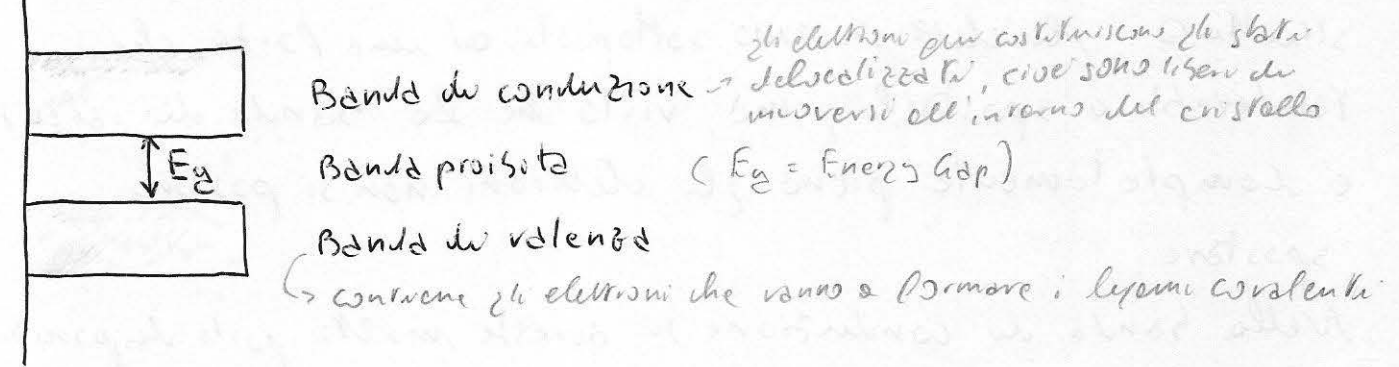 gli elettroni qui costituiscono gli stati
Banda di conduzione → delocalizzati, cioè sono liberi di
muoversi all'interno del cristallo
Eg
Banda proibita (Eg = Energy Gap)
Banda di valenza
↳ contiene gli elettroni che vanno a formare i legami covalenti